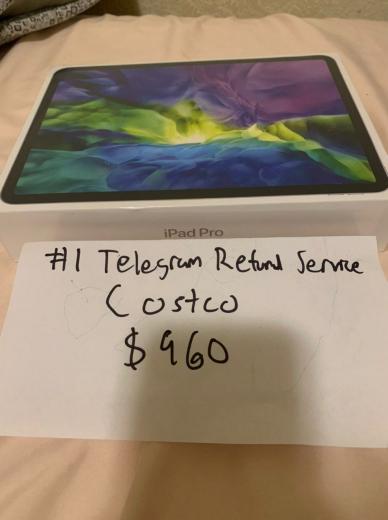 iPad Pro
#1 Telegram Refund Service
Costco
$960